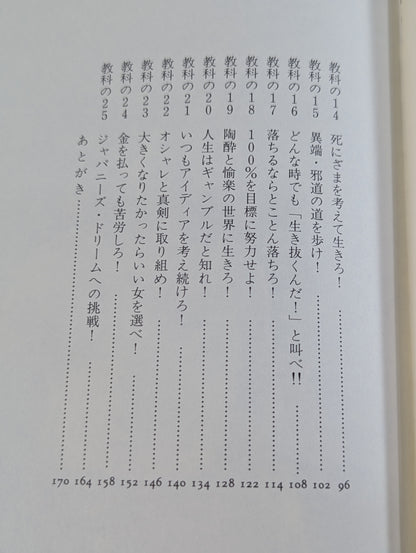 教科の14 死にざまを考えて生きろ！ 96
教科の15 異端・邪道の道を歩け！ 102
教科の16 どんな時でも「生き抜くんだ！」と叫べ!! 108
教科の17 落ちるならとことん落ちろ！ 114
教科の18 100％を目標に努力せよ！ 122
教科の19 陶酔と愉楽の世界に生きろ！ 128
教科の20 人生はギャンブルだと知れ！ 134
教科の21 いつもアイディアを考え続けろ！ 140
教科の22 オシャレと真剣に取り組め！ 146
教科の23 大きくなりたかったらいい女を選べ！ 152
教科の24 金を払っても苦労しろ！ 158
教科の25 ジャパニーズ・ドリームへの挑戦！ 164
あとがき 170